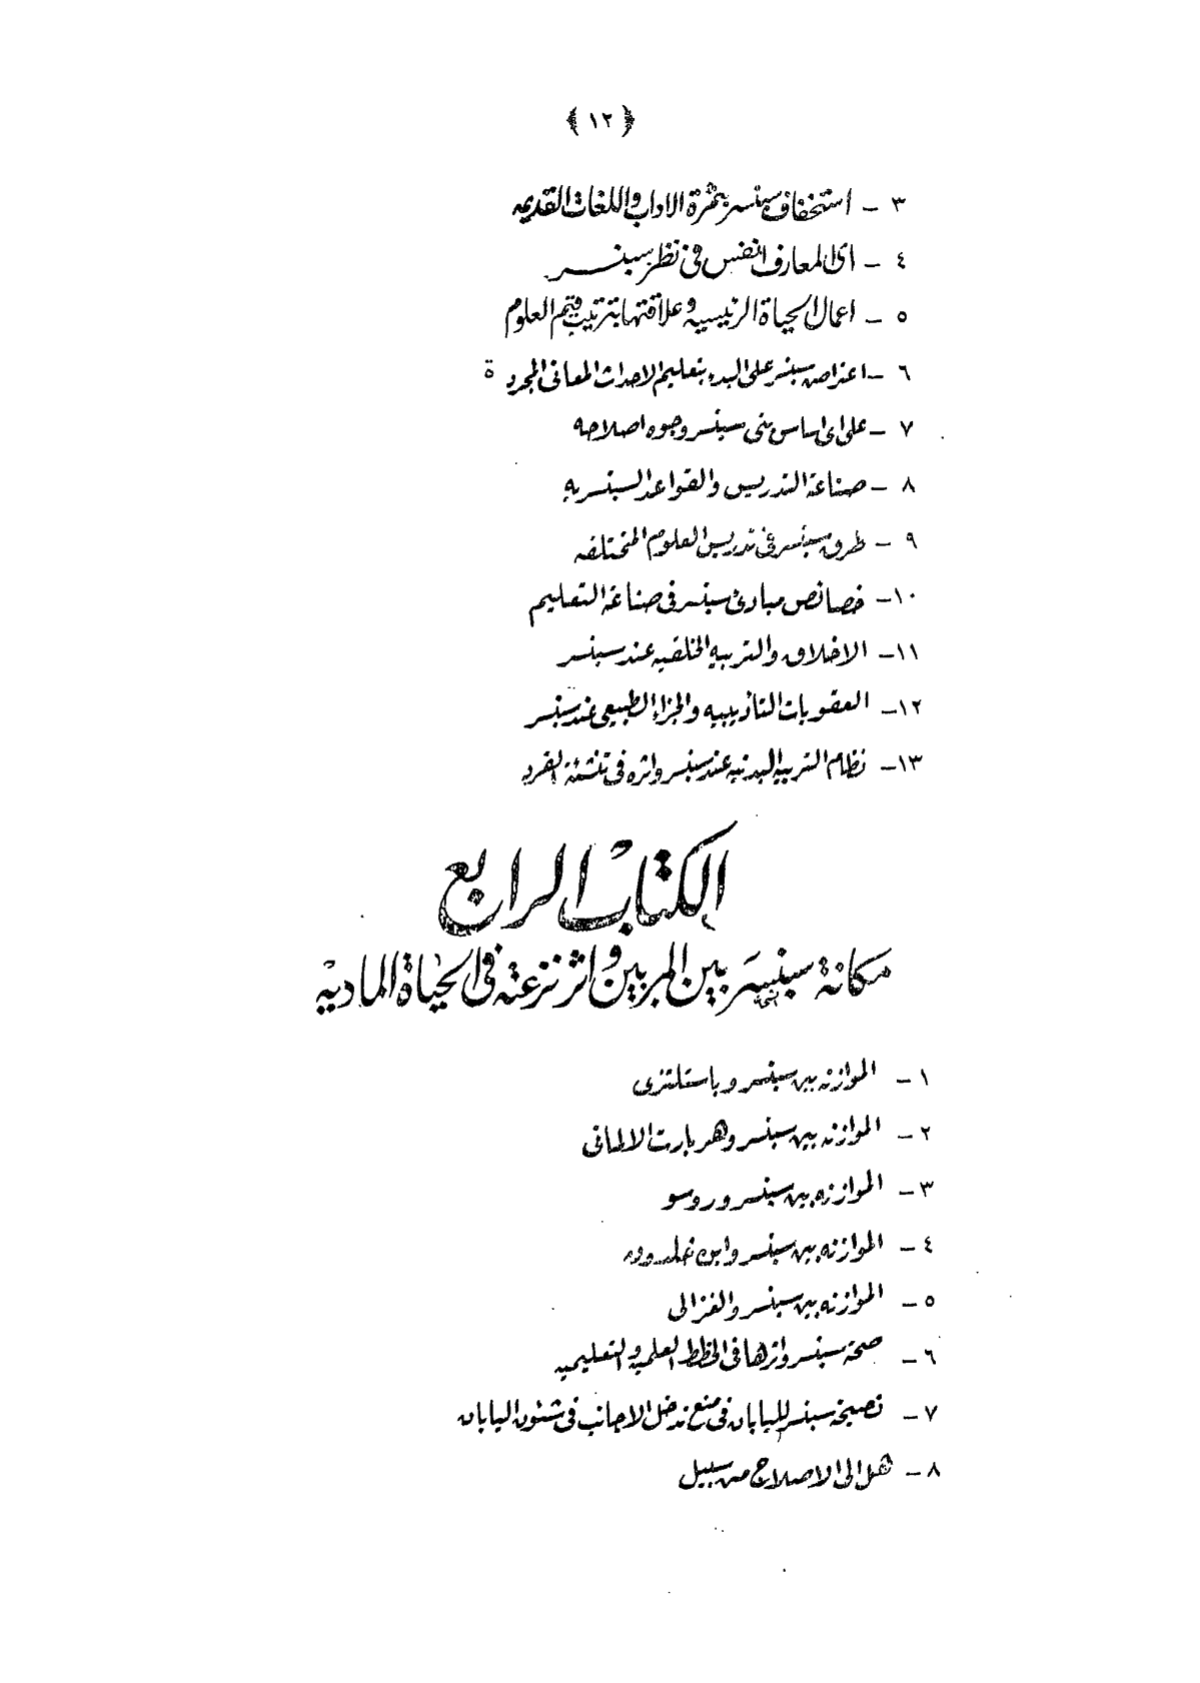 ﴿ ١٢ ﴾
٣ – استخفاف سبنسر بثمرة الاداب واللغات القديمه
٤ – اى المعارف انفس فى نظر سبنسر
٥ – اعمال الحياة الرئيسيه وعلاقتها بترتيب قيم العلوم
٦ – اعتراض سبنسر على البدء بتعليم الاحداث المعانى المجردة
٧ – على اى اساس بنى سبنسر وجوه اصلاحه
٨ – صناعة التدريس والقواعد السبنسريه
٩ – طرق سبنسر فى تدريس العلوم المختلفه
١٠ – خصائص مبادئ سبنسر فى صناعة التعليم
١١ – الاخلاق والتربيه الخلقيه عند سبنسر
١٢ – العقوبات التأديبيه والجزاء الطبيعى عند سبنسر
١٣ – نظام التربيه البدنيه عند سبنسر واثره فى تنشئة الفرد
الكتاب الرابع
مكانة سبنسر بين المربين واثر نزعته فى الحياة الماديه
١ – الموازنه بين سبنسر وباستلتزى
٢ – الموازنه بين سبنسر وهربارت الالمانى
٣ – الموازنه بين سبنسر وروسو
٤ – الموازنه بين سبنسر وابن خلدون
٥ – الموازنه بين سبنسر والغزالى
٦ – صحة سبنسر واثرها فى الخطط العلميه والتعليميه
٧ – نصيحة سبنسر لليابان فى منع تدخل الاجانب فى شئون اليابان
٨ – هل الى الاصلاح من سبيل